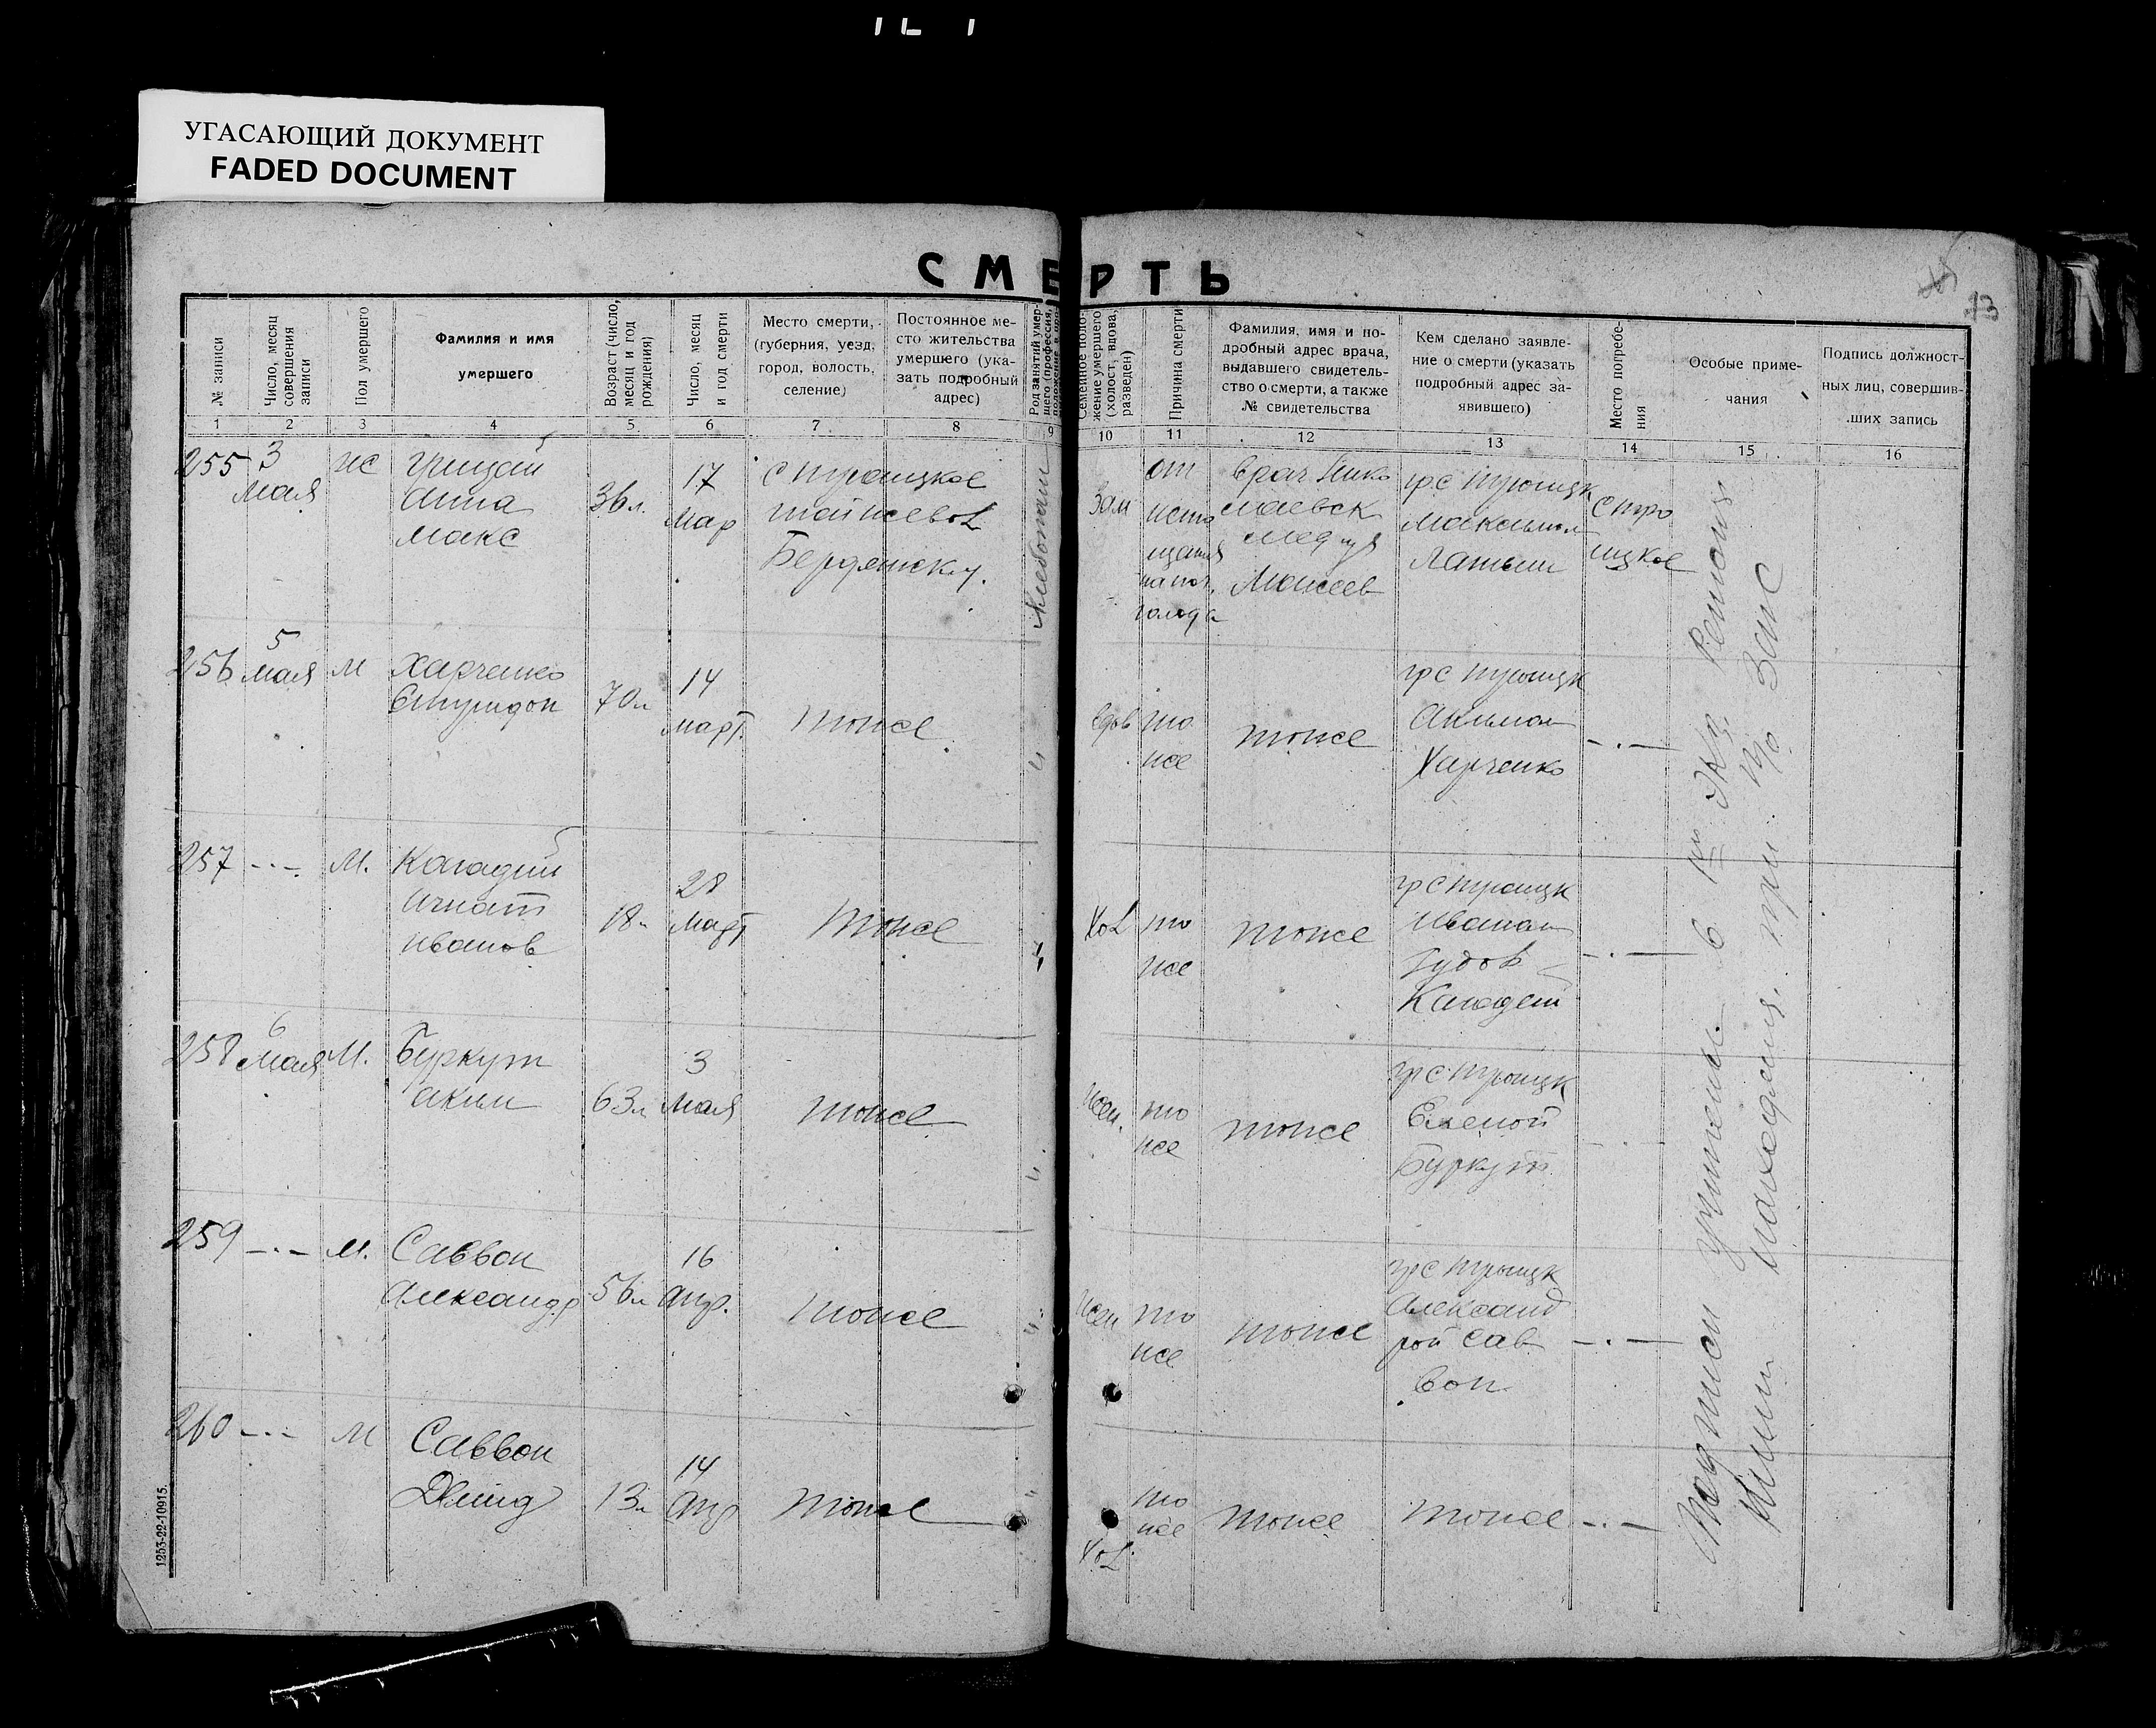 УГАСАЮЩИЙ ДОКУМЕНТ
FADED DOCUMENT
СМЕРТЬ
13
№ записи
Число, месяц
совершения
записи
Пол умершего
Фамилия и имя
умершего
Возраст (число,
месяц и год
рождения)
Число, месяц
и год смерти
Место смерти,
(губерния, уезд,
город, волость,
селение)
Постоянное ме-
сто жительства
умершего (ука-
зать подробный
адрес)
Род занятий умер-
шего (профессия,
Семейное поло-
жение умершего
(холост, вдова,
разведен)
Причина смерти
Фамилия, имя и по-
дробный адрес врача,
выдавшего свидетель-
ство о смерти, а также
№ свидетельства
Кем сделано заявле-
ние о смерти (указать
подробный адрес за-
явившего)
Место погребе-
ния
Особые приме-
чания
Подпись должност-
ных лиц, совершив-
ших запись
1 2 3 4 5 6 7 8 9 10 11 12 13 14 15 16
255
3
мая
ж
Грицай
Анна
Макс
36 л.
17
мар
с Троицкое
Бердянск у.
Хлебопаш
Зам
от
исто
щения
на поч.
голода
врач Нико
лаевск
Моисеев
гр с Троицк
с Тро
ицкое
256
5
мая
М
Харченко
Спиридон
70 л
14
март
тоже
"
вдов
то
же
тоже
гр с Троицк
Харченко
-.-
257
-.-
М.
Кагадий
Игнат
Иванов
18 л
28
март
тоже
"
Хол
то
же
тоже
гр с Троицк
Иваном
Кагадий
-.-
258
6
мая
М.
Буркут
Аким
63 л
3
мая
тоже
"
жен.
то
же
тоже
гр с Троицк
Еленой
Буркут
-.-
259
-.-
М.
Саввон
Александр
56 л
16
апр.
тоже
"
жен
то
же
тоже
гр с Троицк
Александ
рой Сав
вон
-.-
260
-.-
М
Саввон
13 л
14
апр
тоже
"
Хол.
то
же
тоже
тоже
-.-
Подписи учинены в
при
1253-22-10915.